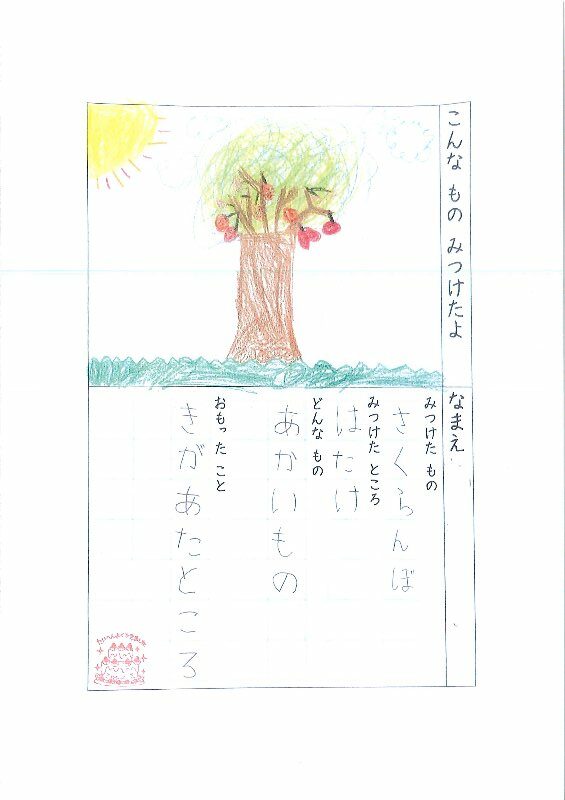 こんな もの みつけたよ
なまえ
みつけた もの
さくらんぼ
みつけた ところ
はたけ
どんな もの
あかいもの
おもった こと
きがあたところ
たいへんよくできました